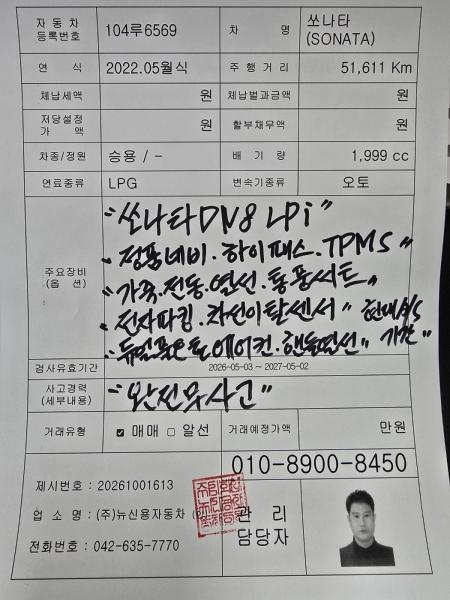 자동차 등록번호 104루6569 차 명 쏘나타 (SONATA)
연 식 2022.05월식 주행거리 51,611 Km
체납세액 원 체납벌과금액 원
저당설정 가 액 원 할부채무액 원
차종/정원 승용 / - 배 기 량 1,999 cc
연료종류 LPG 변속기종류 오토
주요장비 (옵 션)
"쏘나타 DN8 LPi"
"정품네비·하이패스·TPMS"
"가죽·전동·열선·통풍시트"
"전자파킹·차선이탈센서" 현대 A/S
"듀얼풀오토에어컨·핸들열선" 기간"
검사유효기간 2026-05-03 ~ 2027-05-02
사고경력 (세부내용) "완전무사고"
거래유형 ☑ 매매 □ 알선 거래예정가액 만원
010-8900-8450
제시번호 : 20261001613
업 소 명 : (주)뉴신용자동차
전화번호 : 042-635-7770
관 리 담당자